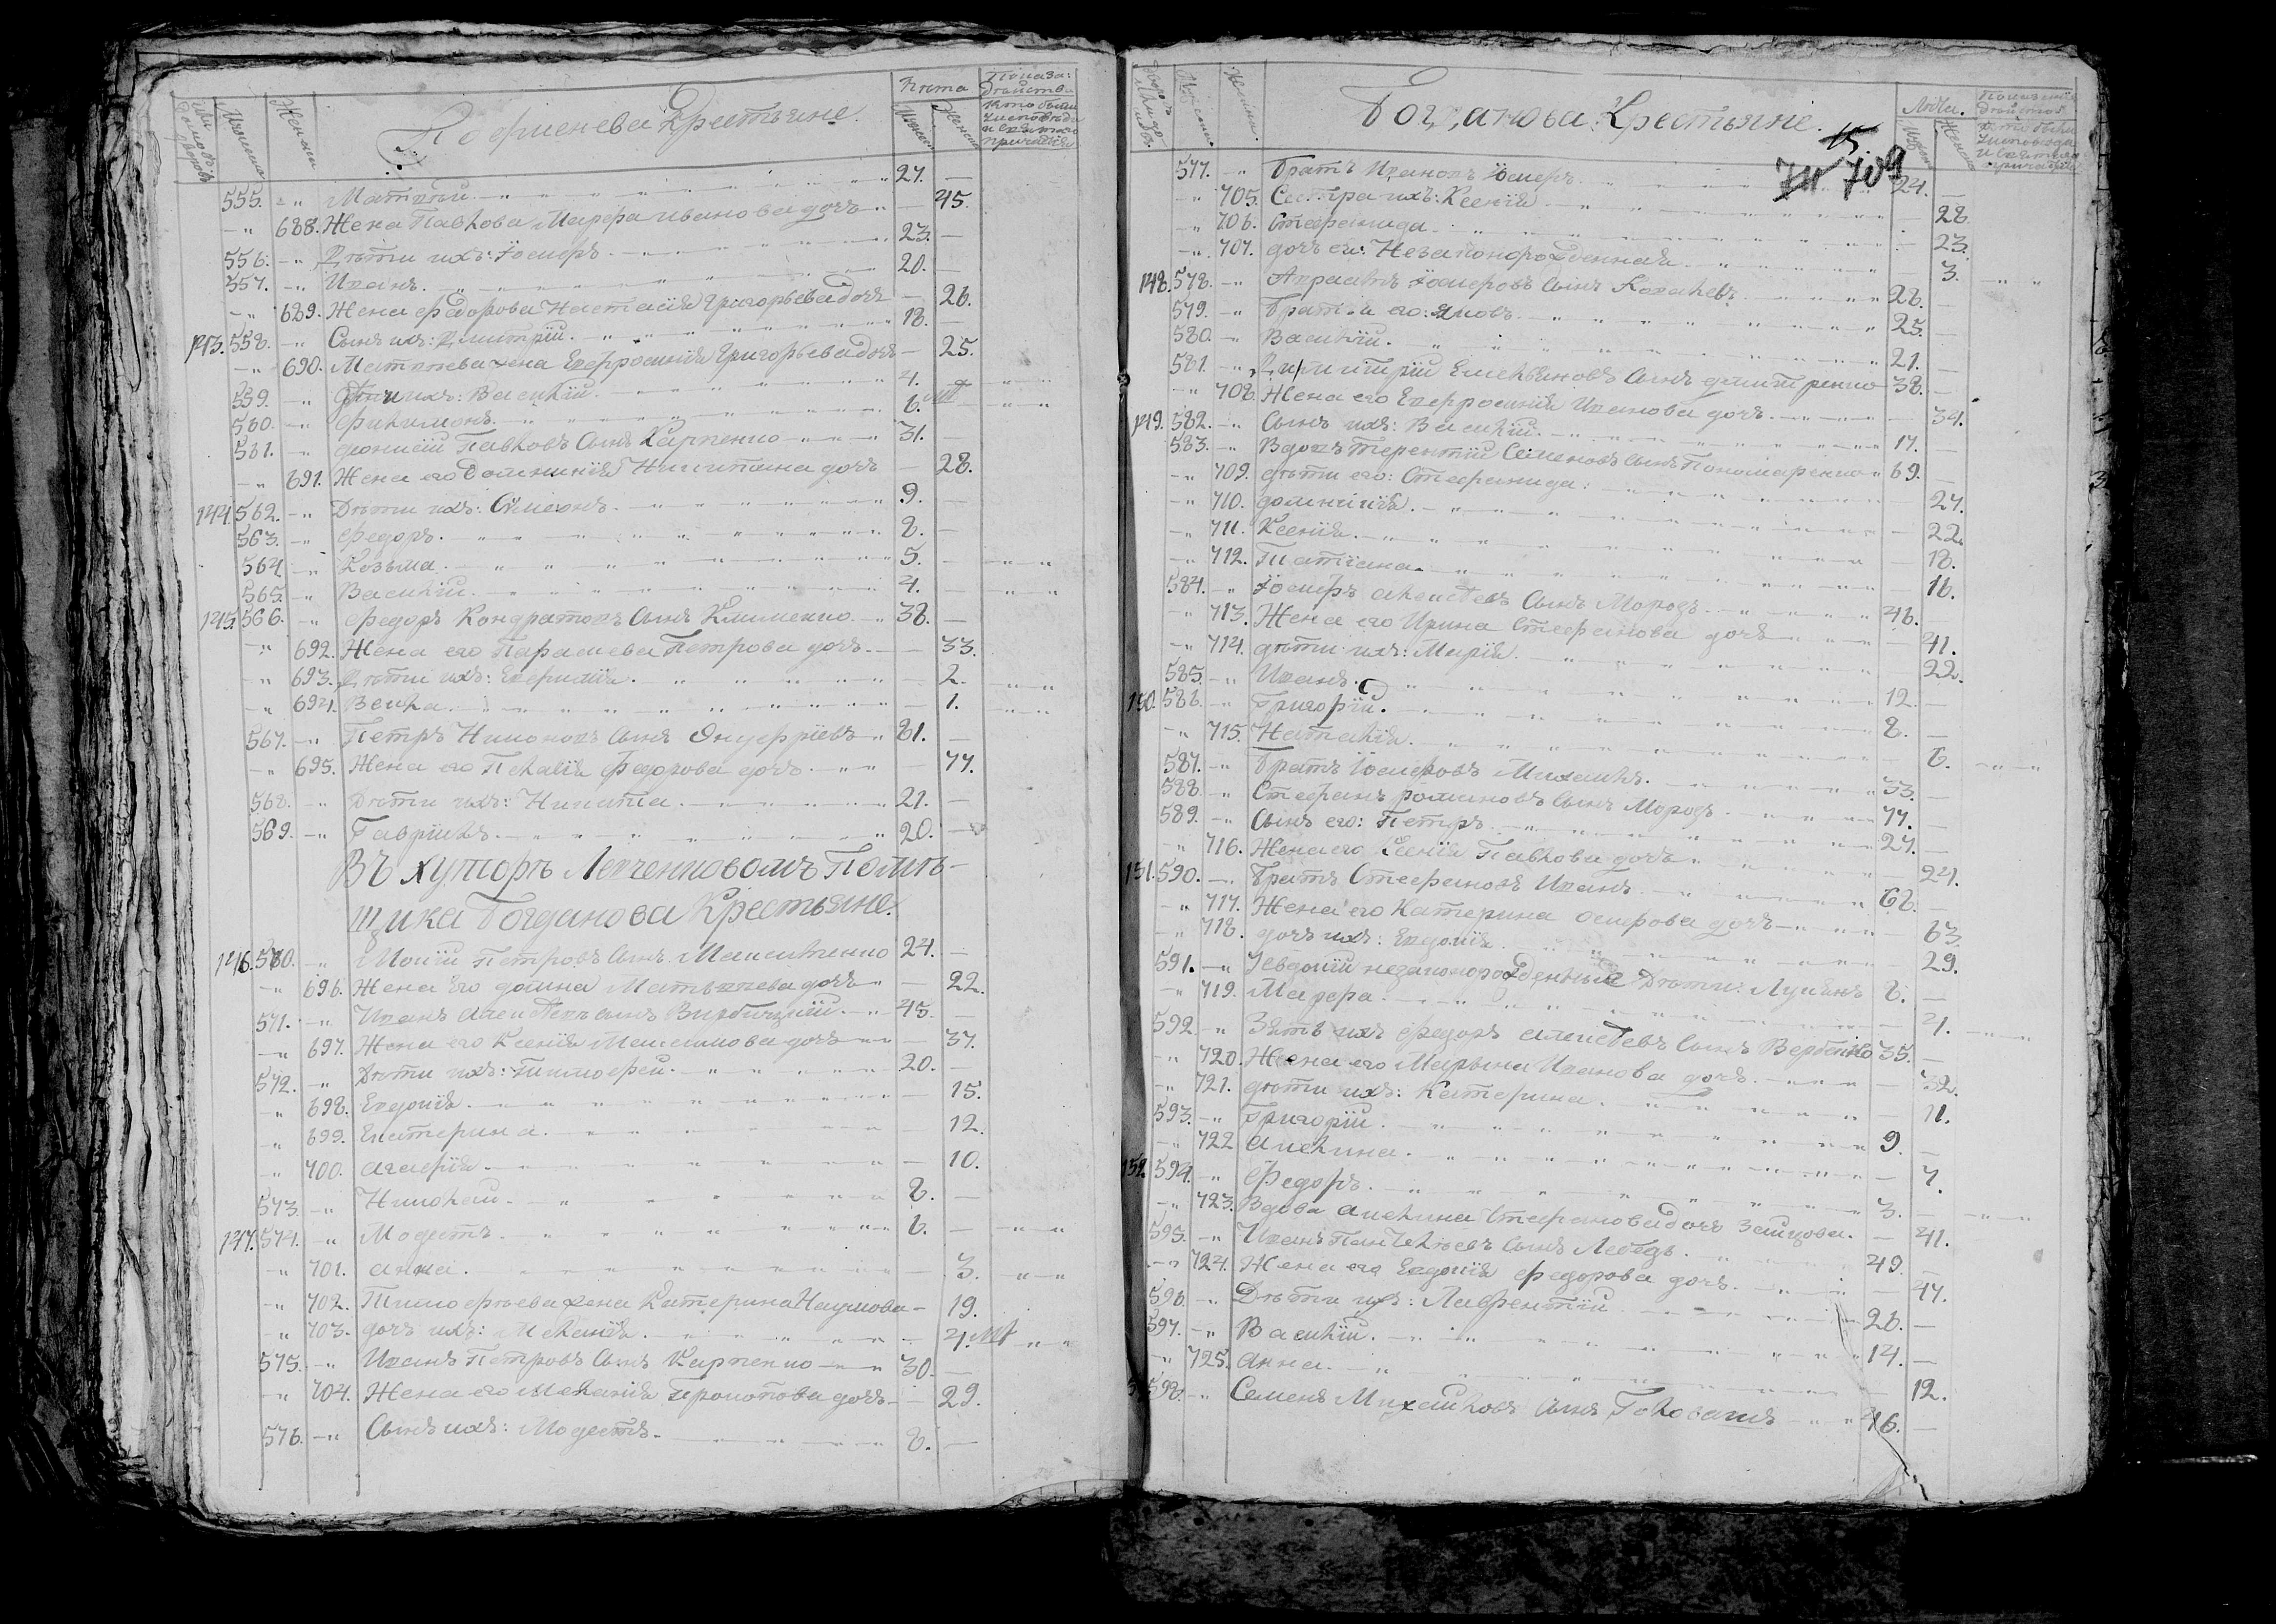 Крестьяне.
Лѣта
555. Матвѣй 27.
688. Жена Павлова Марфа Иванова дочь 45.
556. Дѣти ихъ: Іосифъ 23.
557. Иванъ. 20.
689. Жена Федорова Настасія Григорьева дочь 26.
143. 558. Сынъ ихъ: Димитрій. 18.
690. Матвѣева жена Евфросинія Григорьева дочь 25.
559. Дѣти ихъ: Василій. 4.
560. Филимонъ. 6.
561. Діонисій Павловъ Сынъ Карпенко 31.
691. Жена его Домникія Никитина дочь 28.
144. 562. Дѣти ихъ: Симеонъ. 9.
563. Федоръ. 8.
564. Козьма. 5.
565. Василій. 4.
145. 566. Федоръ Кондратовъ Сынъ Клименко 38.
692. Жена его Параскева Петрова дочь. 33.
693. Дѣти ихъ: Евфимія. 2.
694. Васса. 1.
567. Петръ Никоновъ Сынъ Онуфріевъ 81.
695. Жена его Пелагія Федорова дочь. 77.
568. Дѣти ихъ: Никита 21.
569. Гавріилъ. 20.
Въ хуторѣ Левченковомъ Помѣ-
щика Богданова Крестьяне.
146. 570. Моисій Петровъ Сынъ 24.
696. Жена Его Домна Матвѣева дочь 22.
571. Иванъ Алексѣевъ сынъ Вербицкій. 45.
697. Жена его Ксенія Максимова дочь 37.
572. Дѣти ихъ: Тимофей. 20.
698. Евдокія. 15.
699. Екатерина. 12.
700. Агафія. 10.
573. Николай. 8.
147. 574. Модестъ. 6.
701. Анна. 3.
702. Тимофеева жена Катерина Наумова 19.
703. дочь ихъ: Меланія.
575. Иванъ Петровъ Сынъ Карпенко 30.
704. Жена его Меланія Прокопова дочь 29.
576. Сынъ ихъ: Модестъ. 8.
Богданова Крестьяне.
15.
709
Лѣта.
577. Братъ Ивановъ Іосифъ. 24.
705. Сестра ихъ: Ксенія 28.
706. Стефанида. 23.
707. дочь ея: Незаконорожденная 3.
148. 578. Авраамъ Іосифовъ Сынъ Ковалевъ 28.
579. Братья его: Яковъ. 25.
580. Василій. 21.
581. Димитрій Емельяновъ Сынъ Дмитренко 38.
708. Жена его Евфросинія Иванова дочь. 34.
149. 582. Сынъ ихъ: Василій. 17.
583. Вдовъ Терентій Семеновъ Сынъ Пономаренко 69.
709. дѣти его: Стефанида. 27.
710. Домникія. 22.
711. Ксенія. 18.
712. Татіана. 16.
584. Іосифъ Алексѣевъ Сынъ Морозъ 46.
713. Жена его Ирина Стефанова дочь 41.
714. дѣти ихъ: Марія. 22.
585. Иванъ. 12.
150. 586. Григорій. 8.
715. Наталія. 6.
587. Братъ Іосифовъ Михаилъ. 33.
588. Стефанъ Романовъ Сынъ Морозъ. 77.
589. Сынъ его: Петръ 27.
716. Жена его Ксенія Павлова дочь 24.
151. 590. Братъ Стефановъ Иванъ 68.
717. Жена его Катерина Осифова дочь 63.
718. дочь ихъ: Евдокія. 29.
591. Евдокіи незаконорожденные Дѣти: Лукьянъ 8.
719. Марфа.
592. Зять ихъ Федоръ Алексѣевъ Сынъ Вербенко 35.
720. Жена его Марьяна Иванова дочь. 32.
721. дѣти ихъ: Катерина. 11.
593. Григорій. 9.
722. Акилина. 7.
152. 594. Федоръ. 3.
723. Вдова Акилина Стефанова дочь Зайцова. 41.
595. Иванъ Пантелѣевъ Сынъ Лебедь. 49.
724. Жена его Евдокія Федорова дочь. 47.
596. Дѣти ихъ: Лаврентій 26.
597. Василій. 14.
725. Анна. 12.
598. Семенъ Михайловъ Сынъ 46.